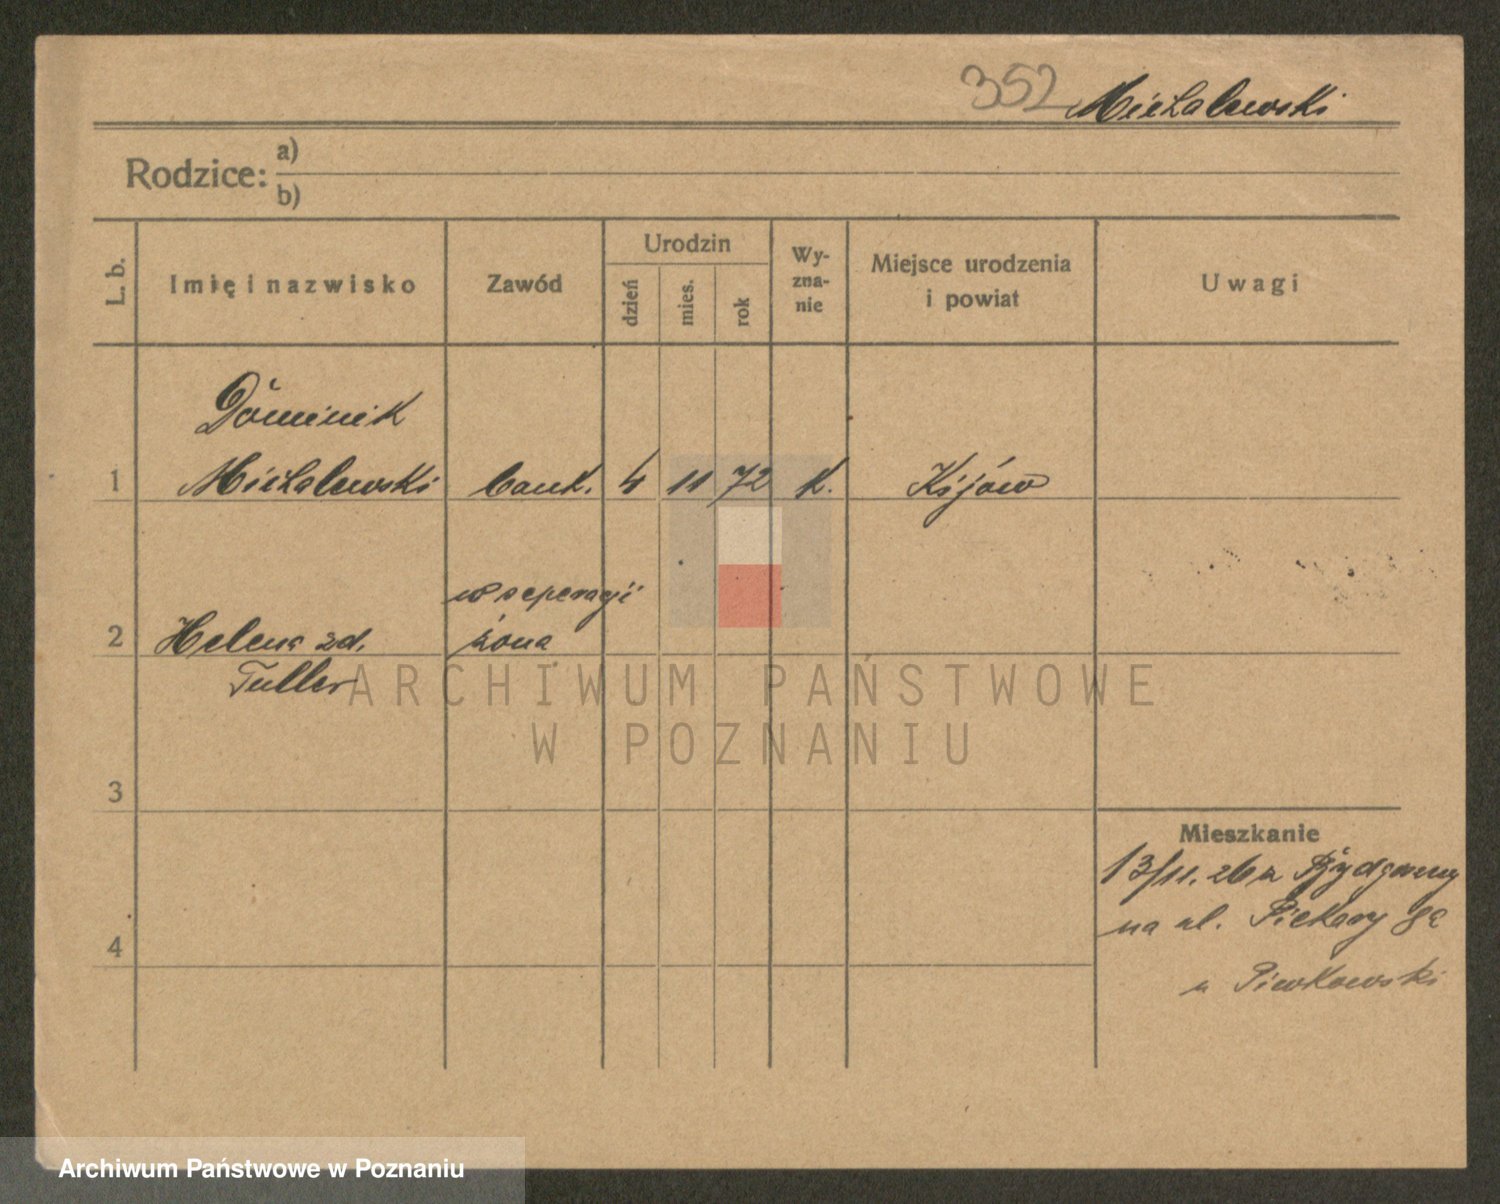 352 Michalewski
Rodzice:
a)
b)
L. b.
Imię i nazwisko
Zawód
Urodzin
dzień
mies.
rok
Wy-
zna-
nie
Miejsce urodzenia
i powiat
Uwagi
Dominik
1 Michalewski bank. 4 11 72 k. Kijów
w seperacji
2 Helena zd. żona
Tuller
3
4
Mieszkanie
13/11. 26 z Bydgoszczy
na ul. Piekary
u Piwkowski
ARCHIWUM PAŃSTWOWE
W POZNANIU
Archiwum Państwowe w Poznaniu